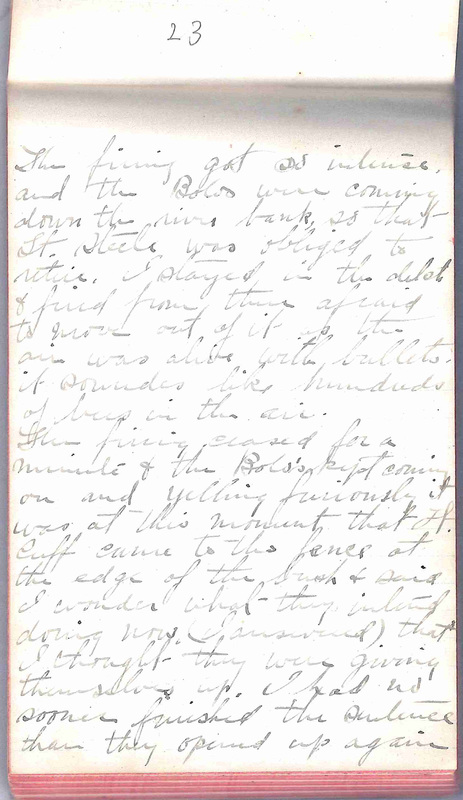 23
The firing got so intense,
and the Bolos were coming
down the river bank, so that
Lt. Steele was obliged to
retire. I stayed in the ditch
& fired from there afraid
to move out of it as the
air was alive with bullets.
it soundes like hundreds
of bees in the air.
The firing ceased for a
minute & the Bolo's kept coming
on and yelling furiously it
was at this moment that Lt.
Cuff came to the fence at
the edge of the bush & said
I wonder what they intend
doing now. (I answered) that
I thought they were giving
themselves up. I had no
sooner finished the sentence
than they opened up again